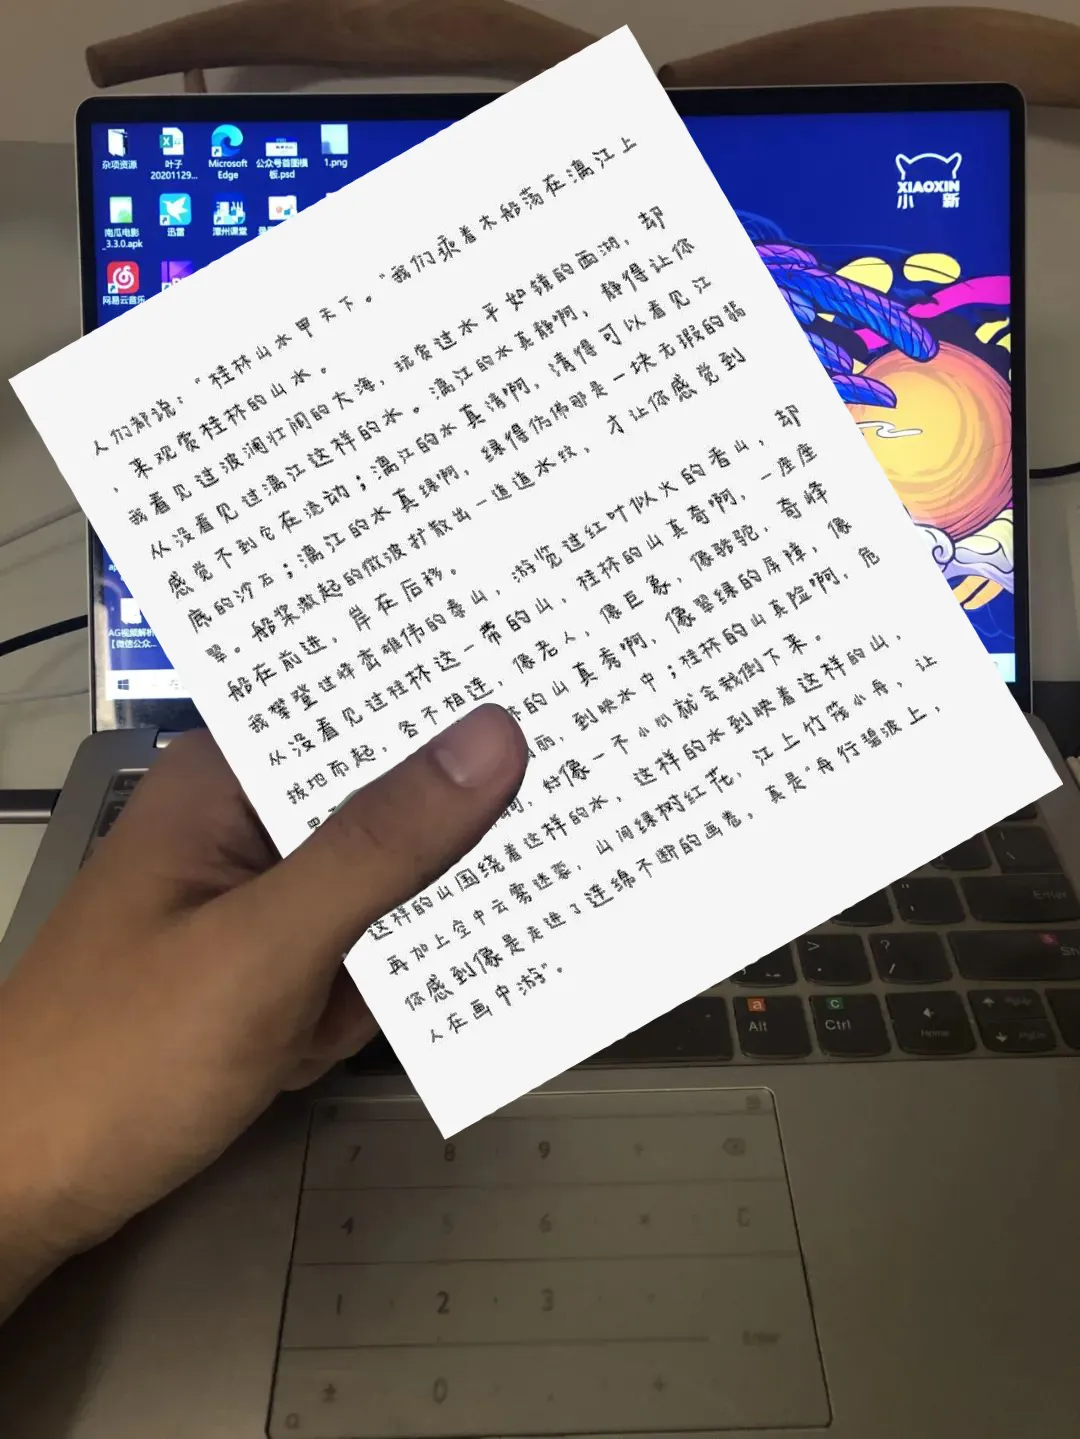 杂项资源
叶子
20201129...
Microsoft
Edge
公众号首图模
板.psd
1.png
XIAOXIN
小 新
南瓜电影
_3.3.0.apk
迅雷
漳州课堂
网易云音乐
AG视频解析
【微信公众...
人们都说："桂林山水甲天下。"我们乘着木船荡在漓江上
，来观赏桂林的山水。
我看见过波澜壮阔的大海，玩赏过水平如镜的西湖，却
从没看见过漓江这样的水。漓江的水真静啊，静得让你
感觉不到它在流动；漓江的水真清啊，清得可以看见江
底的沙石；漓江的水真绿啊，绿得仿佛那是一块无瑕的翡
翠。船桨激起的微波扩散出一道道水纹，才让你感觉到
船在前进，岸在后移。
我攀登过峰峦雄伟的泰山，游览过红叶似火的香山，却
从没看见过桂林这一带的山，桂林的山真奇啊，一座座
拔地而起，各不相连，像老人，像巨象，像骆驼，奇峰
林的山真秀啊，像翠绿的屏障，像
丽，到映水中；桂林的山真险啊，危
，好像一不小心就会栽倒下来。
这样的山围绕着这样的水，这样的水到映着这样的山，
再加上空中云雾迷蒙，山间绿树红花，江上竹筏小舟，让
你感到像是走进了连绵不断的画卷，真是"舟行碧波上，
人在画中游"。
Enter
Alt
Ctrl
Home
7 8 9
4 5 6
1 2 3
0